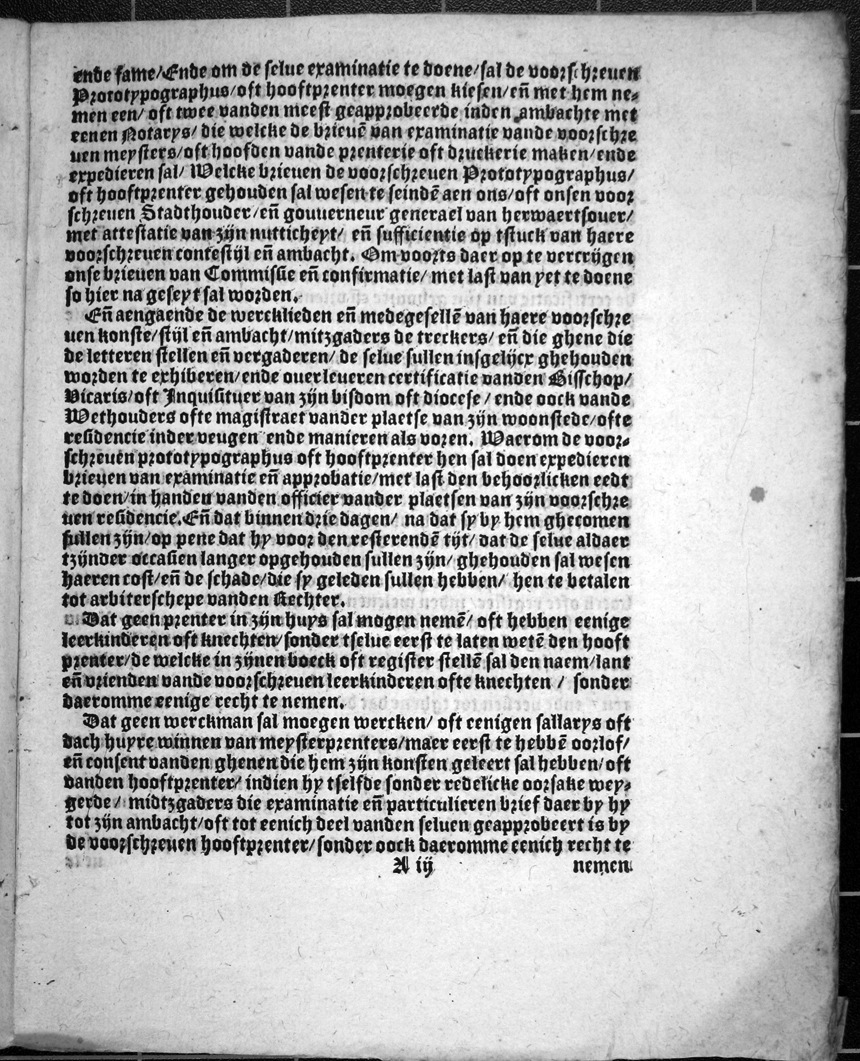 ende fame/Ende om de selue examinatie te doene/sal de voorschreuen
Prototypographus/oft hooftprenter moegen kiesen/eñ met hem ne⸗
men een/ oft twee vanden meest geapprobeerde inden ambachte met
eenen Notarys/ die welcke de brieuē van examinatie vande voorschre
uen meysters/oft hoofden vande prenterie oft druckerie maken/ende
expedieren sal/ Welcke brieuen de voorschreuen Prototypographus/
oft hooftprenter gehouden sal wesen te seindē aen ons/oft onsen voor
schreuen Stadthouder/eñ gouuerneur generael van herwaertsouer/
met attestatie van zijn nutticheyt/ eñ sufficientie op tstuck van haere
voorschreuen contestijl eñ ambacht. Om voorts daer op te vercrijgen
onse brieuen van Commissie eñ confirmatie/ met last van yet te doene
so hier na geseyt sal worden.
Eñ aengaende de wercklieden eñ medegesellē van haere voorschre
uen konste/stijl eñ ambacht/mitzgaders de treckers/ eñ die ghene die
de letteren stellen eñ vergaderen/ de selue sullen insgelijcx ghehouden
worden te exhiberen/ende ouerleueren certificatie vanden Bisschop/
Vicaris/oft Inquisituer van zijn bisdom oft diocese/ ende oock vande
Wethouders ofte magistraet vander plaetse van zijn woonstede/ofte
residencie inder veugen ende manieren als voren. Waerom de voor⸗
schreuen prototypographus oft hooftprenter hen sal doen expedieren
brieuen van examinatie eñ approbatie/met last den behoorlicken eedt
te doen/in handen vanden officier vander plaetsen van zijn voorschre
uen residencie.Eñ dat binnen drie dagen/ na dat sy by hem ghecomen
sullen zijn/op pene dat hy voor den resterendē tijt/ dat de selue aldaer
tzijnder occasien langer opgehouden sullen zijn/ ghehouden sal wesen
haeren cost/eñ de schade/die sy geleden sullen hebben/ hen te betalen
tot arbiterschepe vanden Rechter.
Dat geen prenter in zijn huys sal mogen nemē/ oft hebben eenige
leerkinderen oft knechten/sonder tselue eerst te laten wetē den hooft
prenter/de welcke in zijnen boeck oft register stellē sal den naem/lant
eñ vrienden vande voorschreuen leerkinderen ofte knechten / sonder
daeromme eenige recht te nemen.
Dat geen werckman sal moegen wercken/ oft eenigen sallarys oft
dach huyre winnen van meysterprenters/maer eerst te hebbē oorlof/
eñ consent vanden ghenen die hem zijn konsten geleert sal hebben/oft
vanden hooftprenter/ indien hy tselfde sonder redelicke oorsake wey⸗
gerde/ midtzgaders die examinatie eñ particulieren brief daer by hy
tot zijn ambacht/oft tot eenich deel vanden seluen geapprobeert is by
de voorschreuen hooftprenter/sonder oock daeromme eenich recht te
A iij nemen